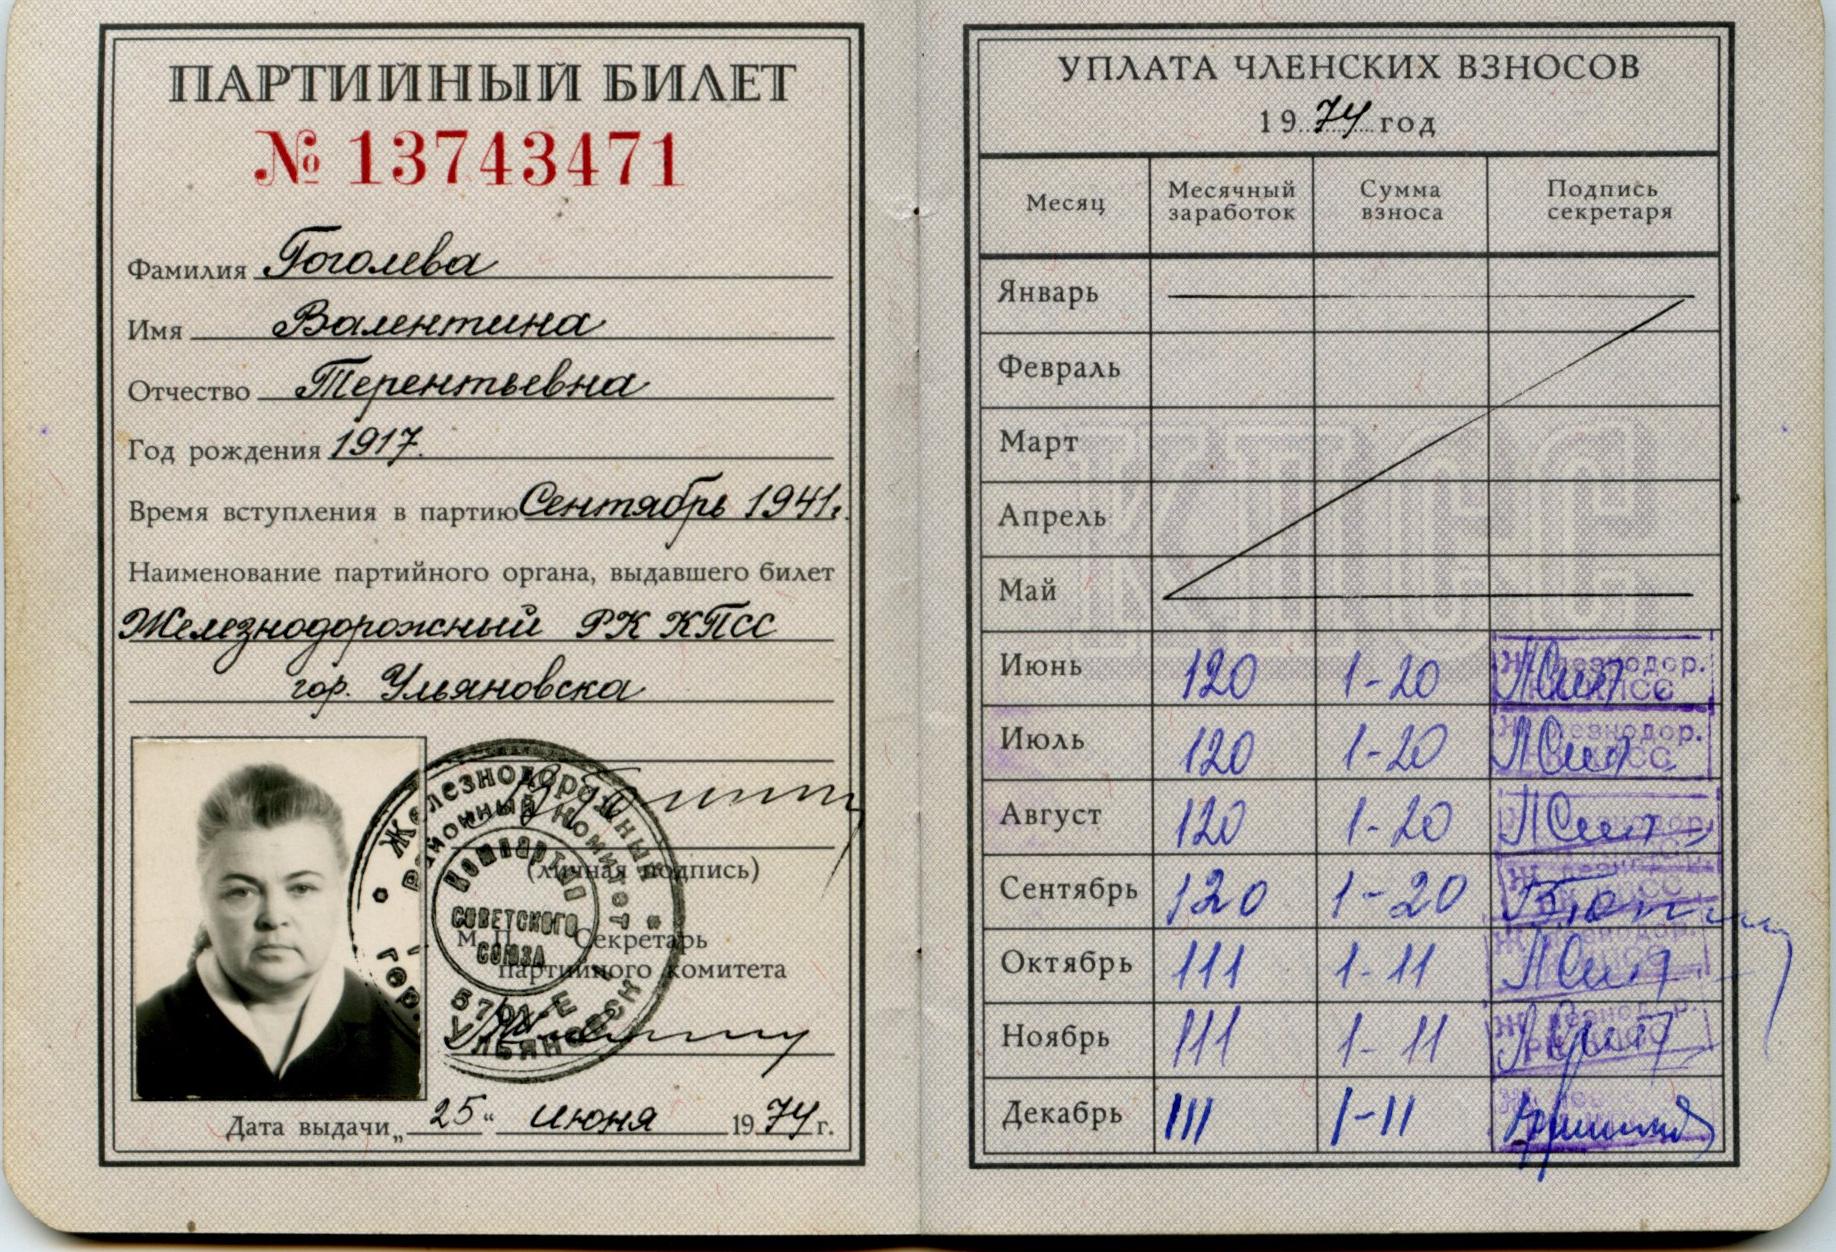 ПАРТИЙНЫЙ БИЛЕТ
№ 13743471
Фамилия Гоголева
Имя Валентина
Отчество Терентьевна
Год рождения 1917.
Время вступления в партию Сентябрь 1941г.
Наименование партийного органа, выдавшего билет
Железнодорожный РК КПСС
гор. Ульяновска
(личная подпись)
М. П. Секретарь
партийного комитета
Железнодорожный
районный комитет
Компартии
СОВЕТСКОГО
СОЮЗА
гор. Ульяновск
Дата выдачи „25“ июня 1974 г.
УПЛАТА ЧЛЕНСКИХ ВЗНОСОВ
1974 год
Месяц Месячный заработок Сумма взноса Подпись секретаря
Январь
Февраль
Март
Апрель
Май
Июнь 120 1-20
Июль 120 1-20
Август 120 1-20
Сентябрь 120 1-20
Октябрь 111 1-11
Ноябрь 111 1-11
Декабрь 111 1-11
КПСС